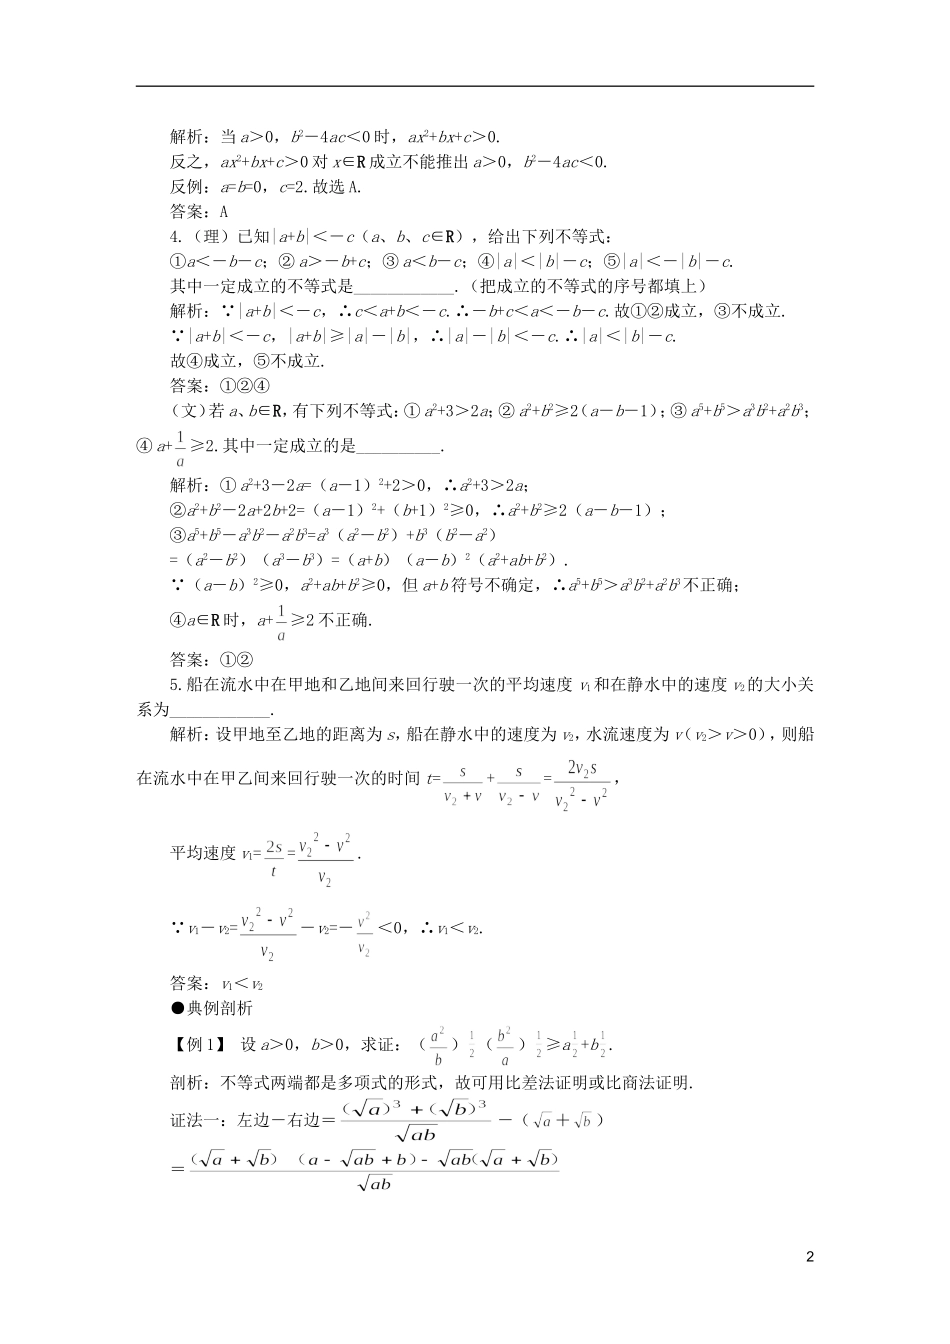 解析：当 a＞0，b²－4ac＜0 时，ax²+bx+c＞0.
反之，ax²+bx+c＞0 对 x∈R 成立不能推出 a＞0，b²－4ac＜0.
反例：a=b=0，c=2.故选 A.
答案：A
4.（理）已知|a+b|＜－c（a、b、c∈R），给出下列不等式：
①a＜－b－c；② a＞－b+c；③ a＜b－c；④|a|＜|b|－c；⑤|a|＜－|b|－c.
其中一定成立的不等式是____________.（把成立的不等式的序号都填上）
解析：∵|a+b|＜－c，∴c＜a+b＜－c.∴－b+c＜a＜－b－c.故①②成立，③不成立.
∵|a+b|＜－c，|a+b|≥|a|－|b|，∴|a|－|b|＜－c.∴|a|＜|b|－c.
故④成立，⑤不成立.
答案：①②④
（文）若 a、b∈R，有下列不等式：① a²+3＞2a；② a²+b²≥2（a－b－1）；③ a⁵+b⁵＞a³b²+a²b³；
④ a+1/a≥2.其中一定成立的是__________.
解析：① a²+3－2a=（a－1）²+2＞0，∴a²+3＞2a；
②a²+b²－2a+2b+2=（a－1）²+（b+1）²≥0，∴a²+b²≥2（a－b－1）；
③a⁵+b⁵－a³b²－a²b³=a³（a²－b²）+b³（b²－a²）
=（a²－b²）（a³－b³）=（a+b）（a－b）²（a²+ab+b²）.
∵（a－b）²≥0，a²+ab+b²≥0，但 a+b 符号不确定，∴a⁵+b⁵＞a³b²+a²b³ 不正确；
④a∈R 时，a+1/a≥2 不正确.
答案：①②
5.船在流水中在甲地和乙地间来回行驶一次的平均速度 v₁ 和在静水中的速度 v₂ 的大小关
系为____________.
解析：设甲地至乙地的距离为 s，船在静水中的速度为 v₂，水流速度为 v（v₂＞v＞0），则船
在流水中在甲乙间来回行驶一次的时间 t=s/(v₂+v)+s/(v₂－v)=2v₂s/(v₂²－v²)，
平均速度 v₁=2s/t=(v₂²－v²)/v₂.
∵v₁－v₂=(v₂²－v²)/v₂－v₂=－v²/v₂＜0，∴v₁＜v₂.
答案：v₁＜v₂
●典例剖析
【例 1】 设 a＞0，b＞0，求证：（a²/b）^(1/2)（b²/a）^(1/2)≥a^(1/2)+b^(1/2).
剖析：不等式两端都是多项式的形式，故可用比差法证明或比商法证明.
证法一：左边－右边＝((√a)³+(√b)³)/√ab－（√a＋√b）
＝((√a+√b)（a－√ab+b）－√ab(√a+√b))/√ab
2